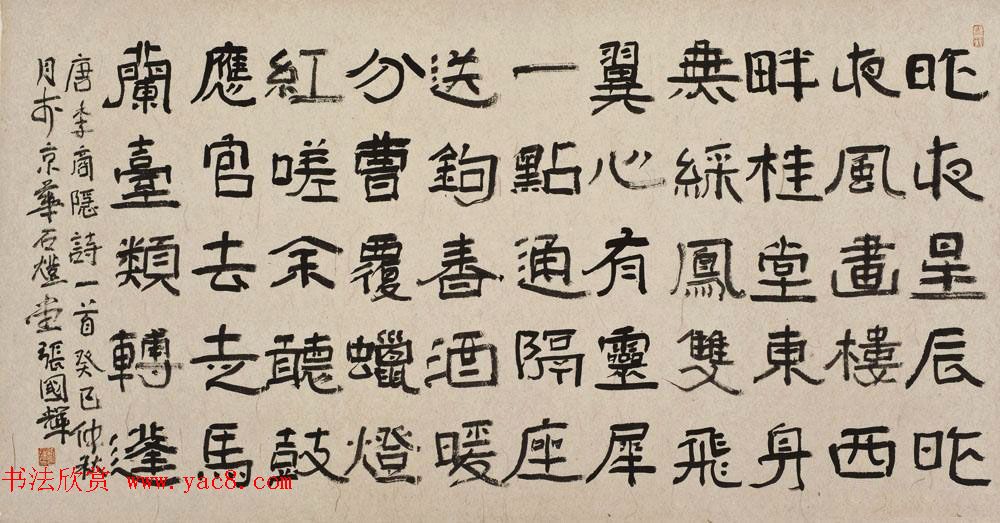 昨夜星辰昨
夜風畫樓西
畔桂堂東身
無綵鳳雙飛
翼心有靈犀
一點通隔座
送鉤春酒暖
分曹覆蠟燈
紅嗟余聽鼓
應官去走馬
蘭臺類轉蓬
唐李商隱詩一首癸巳仲秋
月於京華石堂張國輝
书法欣赏 www.yac8.com